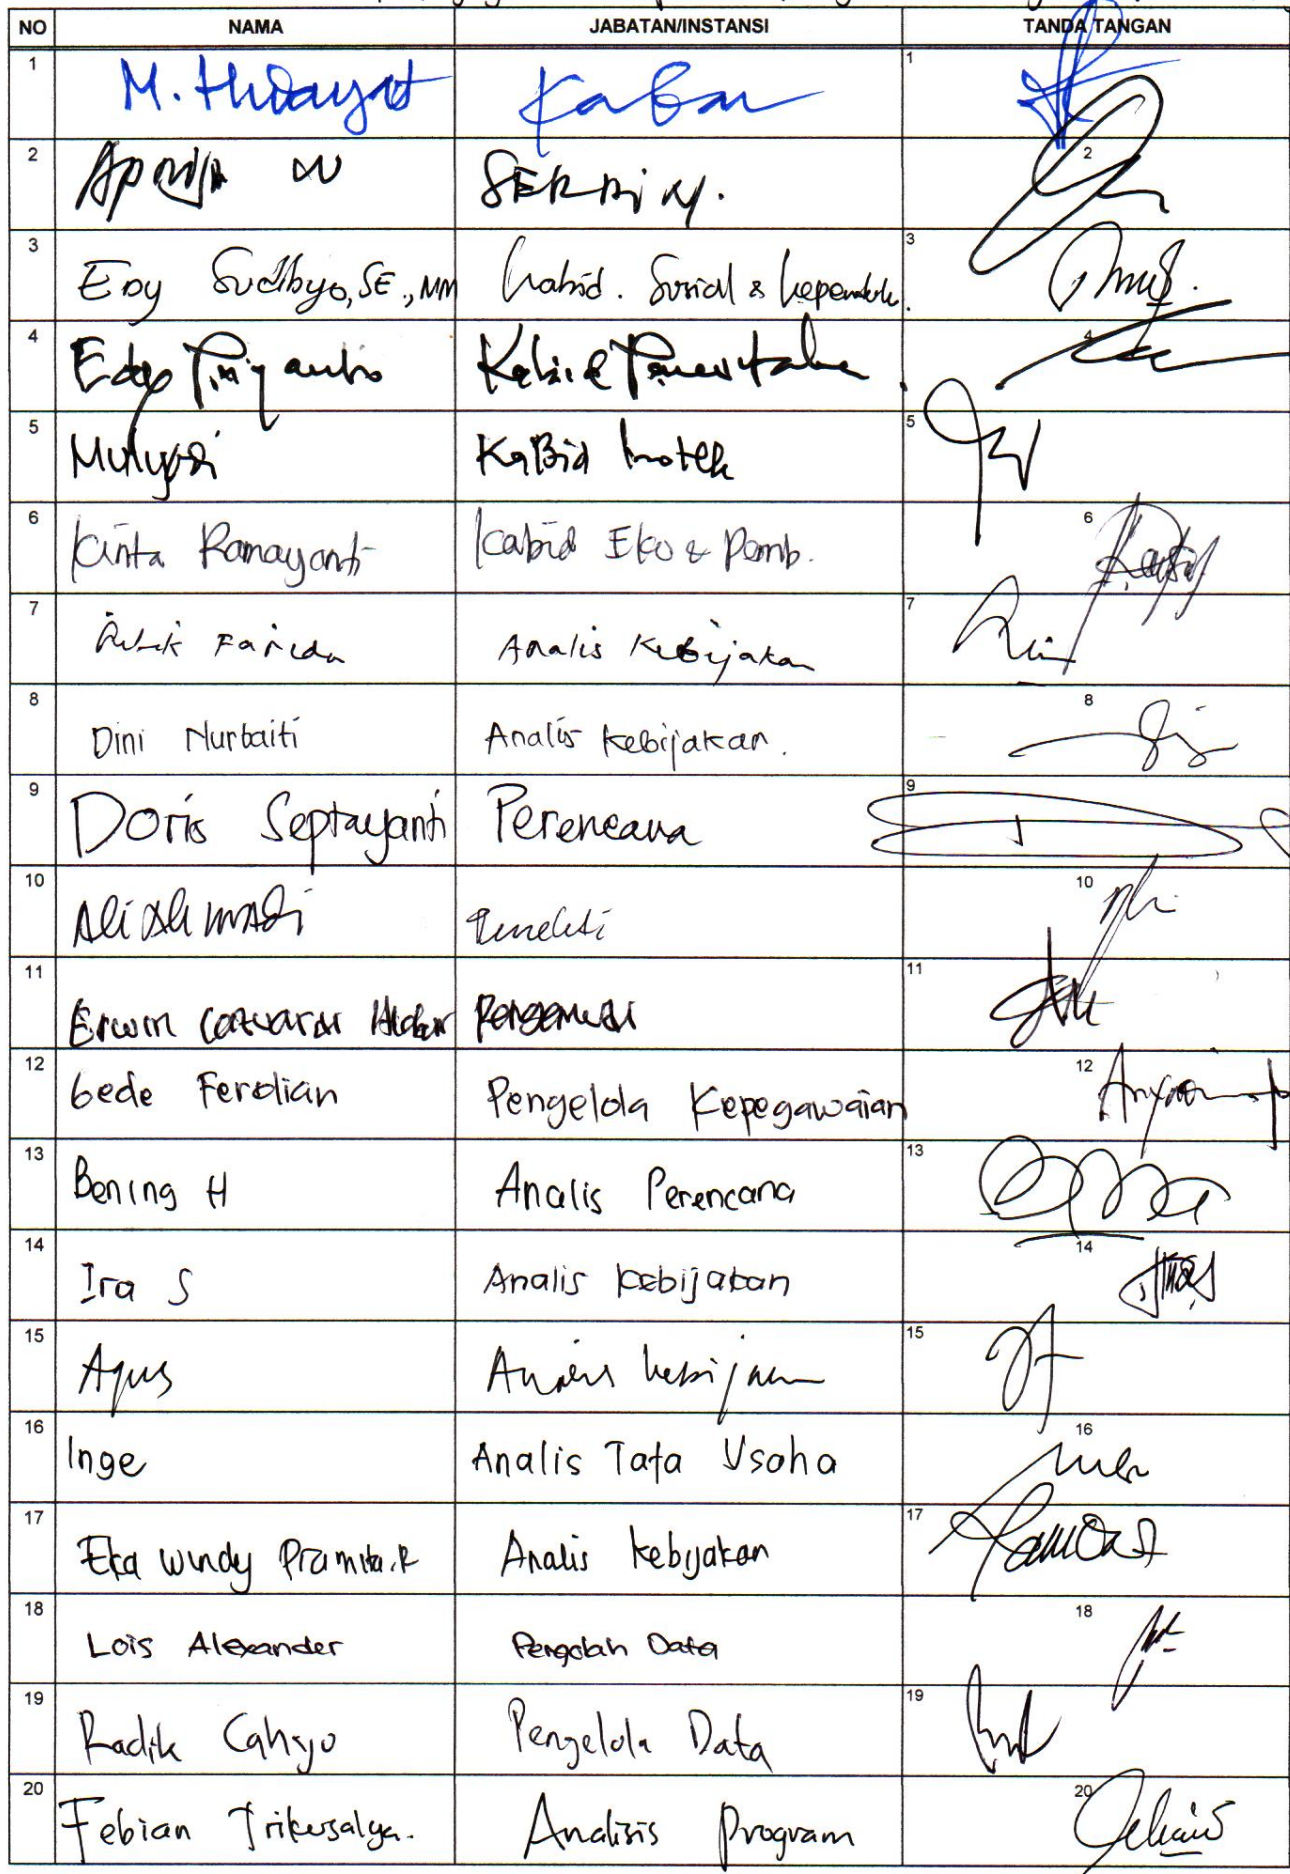 NO NAMA JABATAN/INSTANSI TANDA TANGAN
1 M. Hidayat Kaban 1
2 SEKBAN. 2
3 Edy Sudibyo, SE., MM Kabid. Sosial & Kependuk. 3
4 Edy Kabid 4
5 Mulyadi KaBid Inotek 5
6 Kinta Ramayanti Kabid Eko & Pemb. 6
7 Farida Analis Kebijakan 7
8 Dini Nurbaiti Analis Kebijakan. 8
9 Doris Septayanti Perencana 9
10 Ali Ahmadi Peneliti 10
11 Erwin 11
12 Gede Ferdian Pengelola Kepegawaian 12
13 Bening H Analis Perencana 13
14 Ira S Analis Kebijakan 14
15 Agus Analis 15
16 Inge Analis Tata Usaha 16
17 Eka Windy Pramita.R Analis Kebijakan 17
18 Lois Alexander Pengolah Data 18
19 Radik Cahyo Pengelola Data 19
20 Febian Analisis Program 20